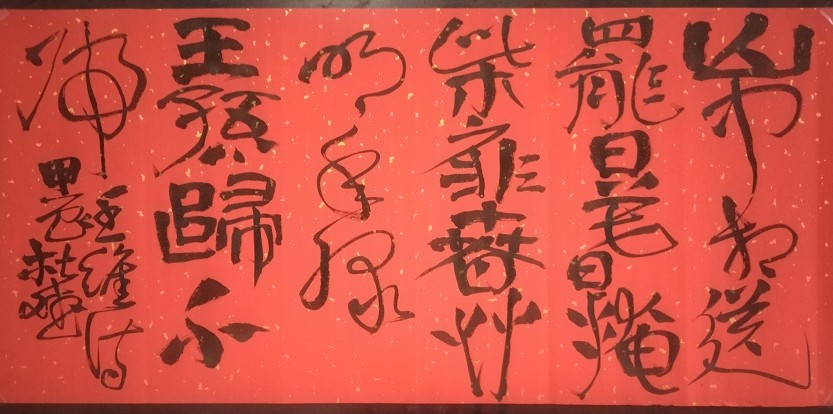 山中相送
罷日暮掩
柴扉春艸
明年綠
王孫歸不
歸
王維詩
甲辰杜